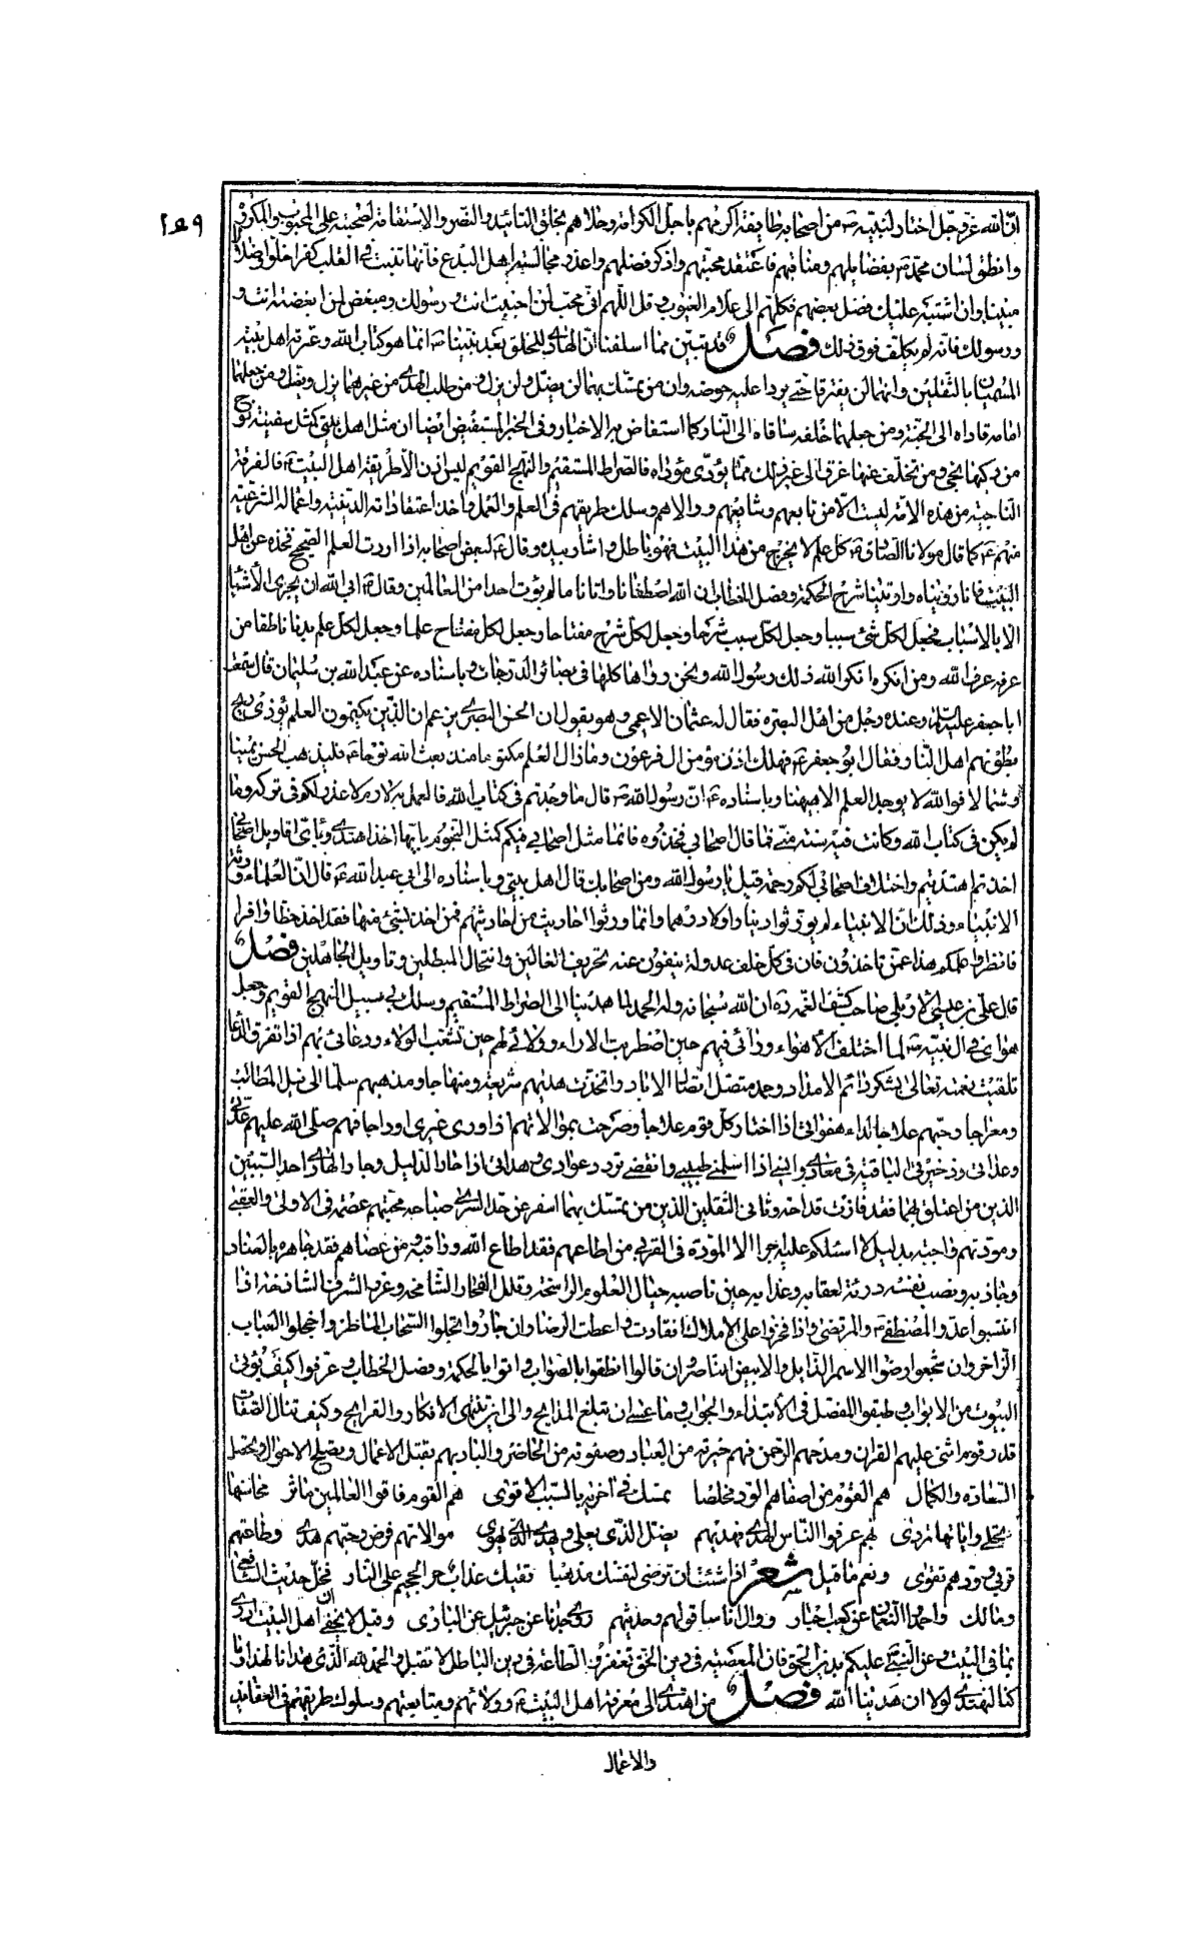 ١٥٩
ان الله عز وجل اختار لنبيه ص من اصحابه طايفة اكرمهم باجل الكرامة وحلاهم بحلى التاييد والنصر والاستقامة لصحبته على المحبوب والمكروه
وانطق لسان محمد ص بفضايلهم ومناقبهم فاعتقد محبتهم واذكر فضلهم واحذر مجالسة اهل البدع فانها تنبت في القلب كفرا خفيا وضلالا
مبينا وان اشتبه عليك فضل بعضهم فكلهم الى علام الغيوب وقل اللهم اني محب لمن احببته انت ورسولك ومبغض لمن ابغضته انت و
ورسولك فانه لم يكلف فوق ذلك فصل قد تبين مما اسلفنا ان الهادي للخلق بعد نبينا ص انما هو كتاب الله وعترة اهل بيته
المسميان بالثقلين وانهما لن يفترقا حتى يردا عليه حوضه وان من تمسك بهما لن يضل ولن يزل ومن طلب الهدى من غيرهما يزل ويضل ومن جعلهما
امامه قاداه الى الجنة ومن جعلهما خلفه ساقاه الى النار كما استفاض به الاخبار وفي الخبر المستفيض ايضا ان مثل اهل بيتي كمثل سفينة نوح
من ركبها نجى ومن تخلف عنها غرق الى غير ذلك مما يؤدى مؤداه فالصراط المستقيم والنهج القويم ليس اذن الا طريقة اهل البيت ع فالفرقة
الناجية من هذه الامة ليست الا من تابعهم وشايعهم ووالاهم وسلك طريقهم في العلم والعمل واخذ اعتقاداته الدينية واعماله الشرعية
منهم ع كما قال مولانا الصادق ع كل علم لا يخرج من هذا البيت فهو باطل واشار بيده وقال ع لبعض اصحابه اذا اردت العلم الصحيح فخذه عن اهل
البيت فانا رويناه واوتينا شرح الحكمة وفصل الخطاب ان الله اصطفانا واتانا ما لم يؤت احدا من العالمين وقال ع ابى الله ان يجرى الاشيا
الا بالاسباب فجعل لكل شئ سببا وجعل لكل سبب شرحا وجعل لكل شرح مفتاحا وجعل لكل مفتاح علما وجعل لكل علم بابا ناطقا من
عرفه عرف الله ومن انكره انكر الله ذلك رسول الله ونحن رواها كلها في بصائر الدرجات وباسناده عن عبد الله بن سليمان قال سمعت
ابا جعفر عليه السلام وعنده رجل من اهل البصرة فقال له عثمان الاعمى وهو يقول ان الحسن البصرى يزعم ان الذين يكتمون العلم تؤذى ريح
بطونهم اهل النار فقال ابو جعفر ع فهلك اذن مؤمن ال فرعون وما زال العلم مكتوما منذ بعث الله نوحا ع فليذهب الحسن يمينا
وشمالا فوالله لا يوجد العلم الا هيهنا وباسناده ع ان رسول الله ص قال ما وجدتم في كتاب الله فالعمل به لازم لا عذر لكم في تركه وما
لم يكن في كتاب الله وكانت فيه سنة مني فما قال اصحابي فخذوه فانما مثل اصحابي فيكم كمثل النجوم بايها اخذ اهتدى وباى اقاويل اصحابي
اخذتم اهتديتم واختلاف اصحابي لكم رحمة قيل يا رسول الله ومن اصحابك قال اهل بيتي وباسناده الى ابي عبد الله ع قال ان العلماء ورثة
الانبياء وذلك ان الانبياء لم يورثوا دينارا ولا درهما وانما ورثوا احاديث من احاديثهم فمن اخذ بشئ منها فقد اخذ حظا وافرا
فانظروا علمكم هذا عمن تاخذون فان في كل خلف عدولا ينفون عنه تحريف الغالين وانتحال المبطلين وتاويل الجاهلين فصل
قال علي بن عيسى الاربلي صاحب كشف الغمة ره ان الله سبحانه وله الحمد لما هدينا الى الصراط المستقيم وسلك بي سبيل النهج القويم وجعل
هواى في ال نبيه ص لما اختلفت الاهواء ورائى فيهم حين اضطربت الاراء وولائي لهم حين تشعب الولاء ودعائي بهم اذا تفرق الدعا
تلقيت نعمته تعالى بشكر دائم الامداد وحمد متصل اتصال الاباد واتخذت هديهم شريعة ومنهاجا ومذهبهم سلما الى نيل المطالب
ومعراجا وحبهم علاجا لداء هفواتى اذا اختار كل قوم علاجا وصرحت بموالاتهم اذا ورى غيرى او داجا فهم صلى الله عليهم عدتي
وعتادى وذخيرتي الباقية في معادى وانسى اذا اسلمني طبيبي وانقضى تردد عوادى وهداتى اذا حار الدليل وحار الهادى احد السببين
الذين من اعتلق بهما فقد فازت قداحه وثاني الثقلين الذين من تمسك بهما اسفر عن حمد السرى صباحه محبتهم عصمة في الاولى والعقبى
ومودتهم واجبة بدليل لا اسئلكم عليه اجرا الا المودة في القربى من اطاعهم فقد اطاع الله وراقبه ومن عصاهم فقد جاهره بالعناد
وحاذبه ونصب نفسه درئة لعقابه وعذابه حين ناصبه جبال العلوم الراسخة وقلل الفخار الشامخة وغرر الشرف الشادخة اذا
انتسبوا عدوا المصطفى ص والمرتضى واذا فخروا على الاملاك انقادت واعطت الرضا وان جادوا بخلوا السحاب الماطر واخجلوا العباب
الزاخر وان شجعوا رضوا الاسمر الذابل والابيض الباتر وان قالوا نطقوا بالصواب واتوا بالحكمة وفصل الخطاب وعرفوا كيف يؤتى
البيوت من الابواب وطبقوا المفصل في الابتداء والجواب وما عسى ان تبلغ المدايح والى اين تنتهى الافكار والقرايح وكيف تنال الصفات
قدر قوم اثنى عليهم القران ومدحهم الرحمن فهم خيرته من العباد وصفوته من الحاضر والباد بهم يقبل الاعمال ويصلح الاحوال ويحصل
السعادة والكمال هم القوم من اصفاهم الود مخلصا تمسك في اخريه بالسبب الاقوى هم القوم فاقوا العالمين ماثر محاسنها
تجلى واياتها تروى بهم عرف الناس الهدى فهديهم يضل الذى يقلى ويهدى الذى يهوى موالاتهم فرض وحبهم هدى وطاعتهم
قربى وودهم تقوى ونعم ما قيل شعر اذا شئت ان ترضى لنفسك مذهبا تقيك عذاب حر الجحيم على النار فخل حديث الشافعي
ومالك واحمد او النعمان عن كعب احبار ووال اناسا قولهم وحديثهم روى جدنا عن جبرئيل عن البارى وقيل لا يخفى ان اهل البيت ادرى
بما في البيت وعن النبي ص عليكم بدين الحق فان المعصية في دين الحق تغفر والطاعة في دين الباطل لا تقبل والحمد لله الذى هدانا لهذا وما
كنا لنهتدى لولا ان هدينا الله فصل من اهتدى الى معرفة اهل البيت ع وولائهم ومتابعتهم وسلوك طريقهم في العقايد
والاعمال